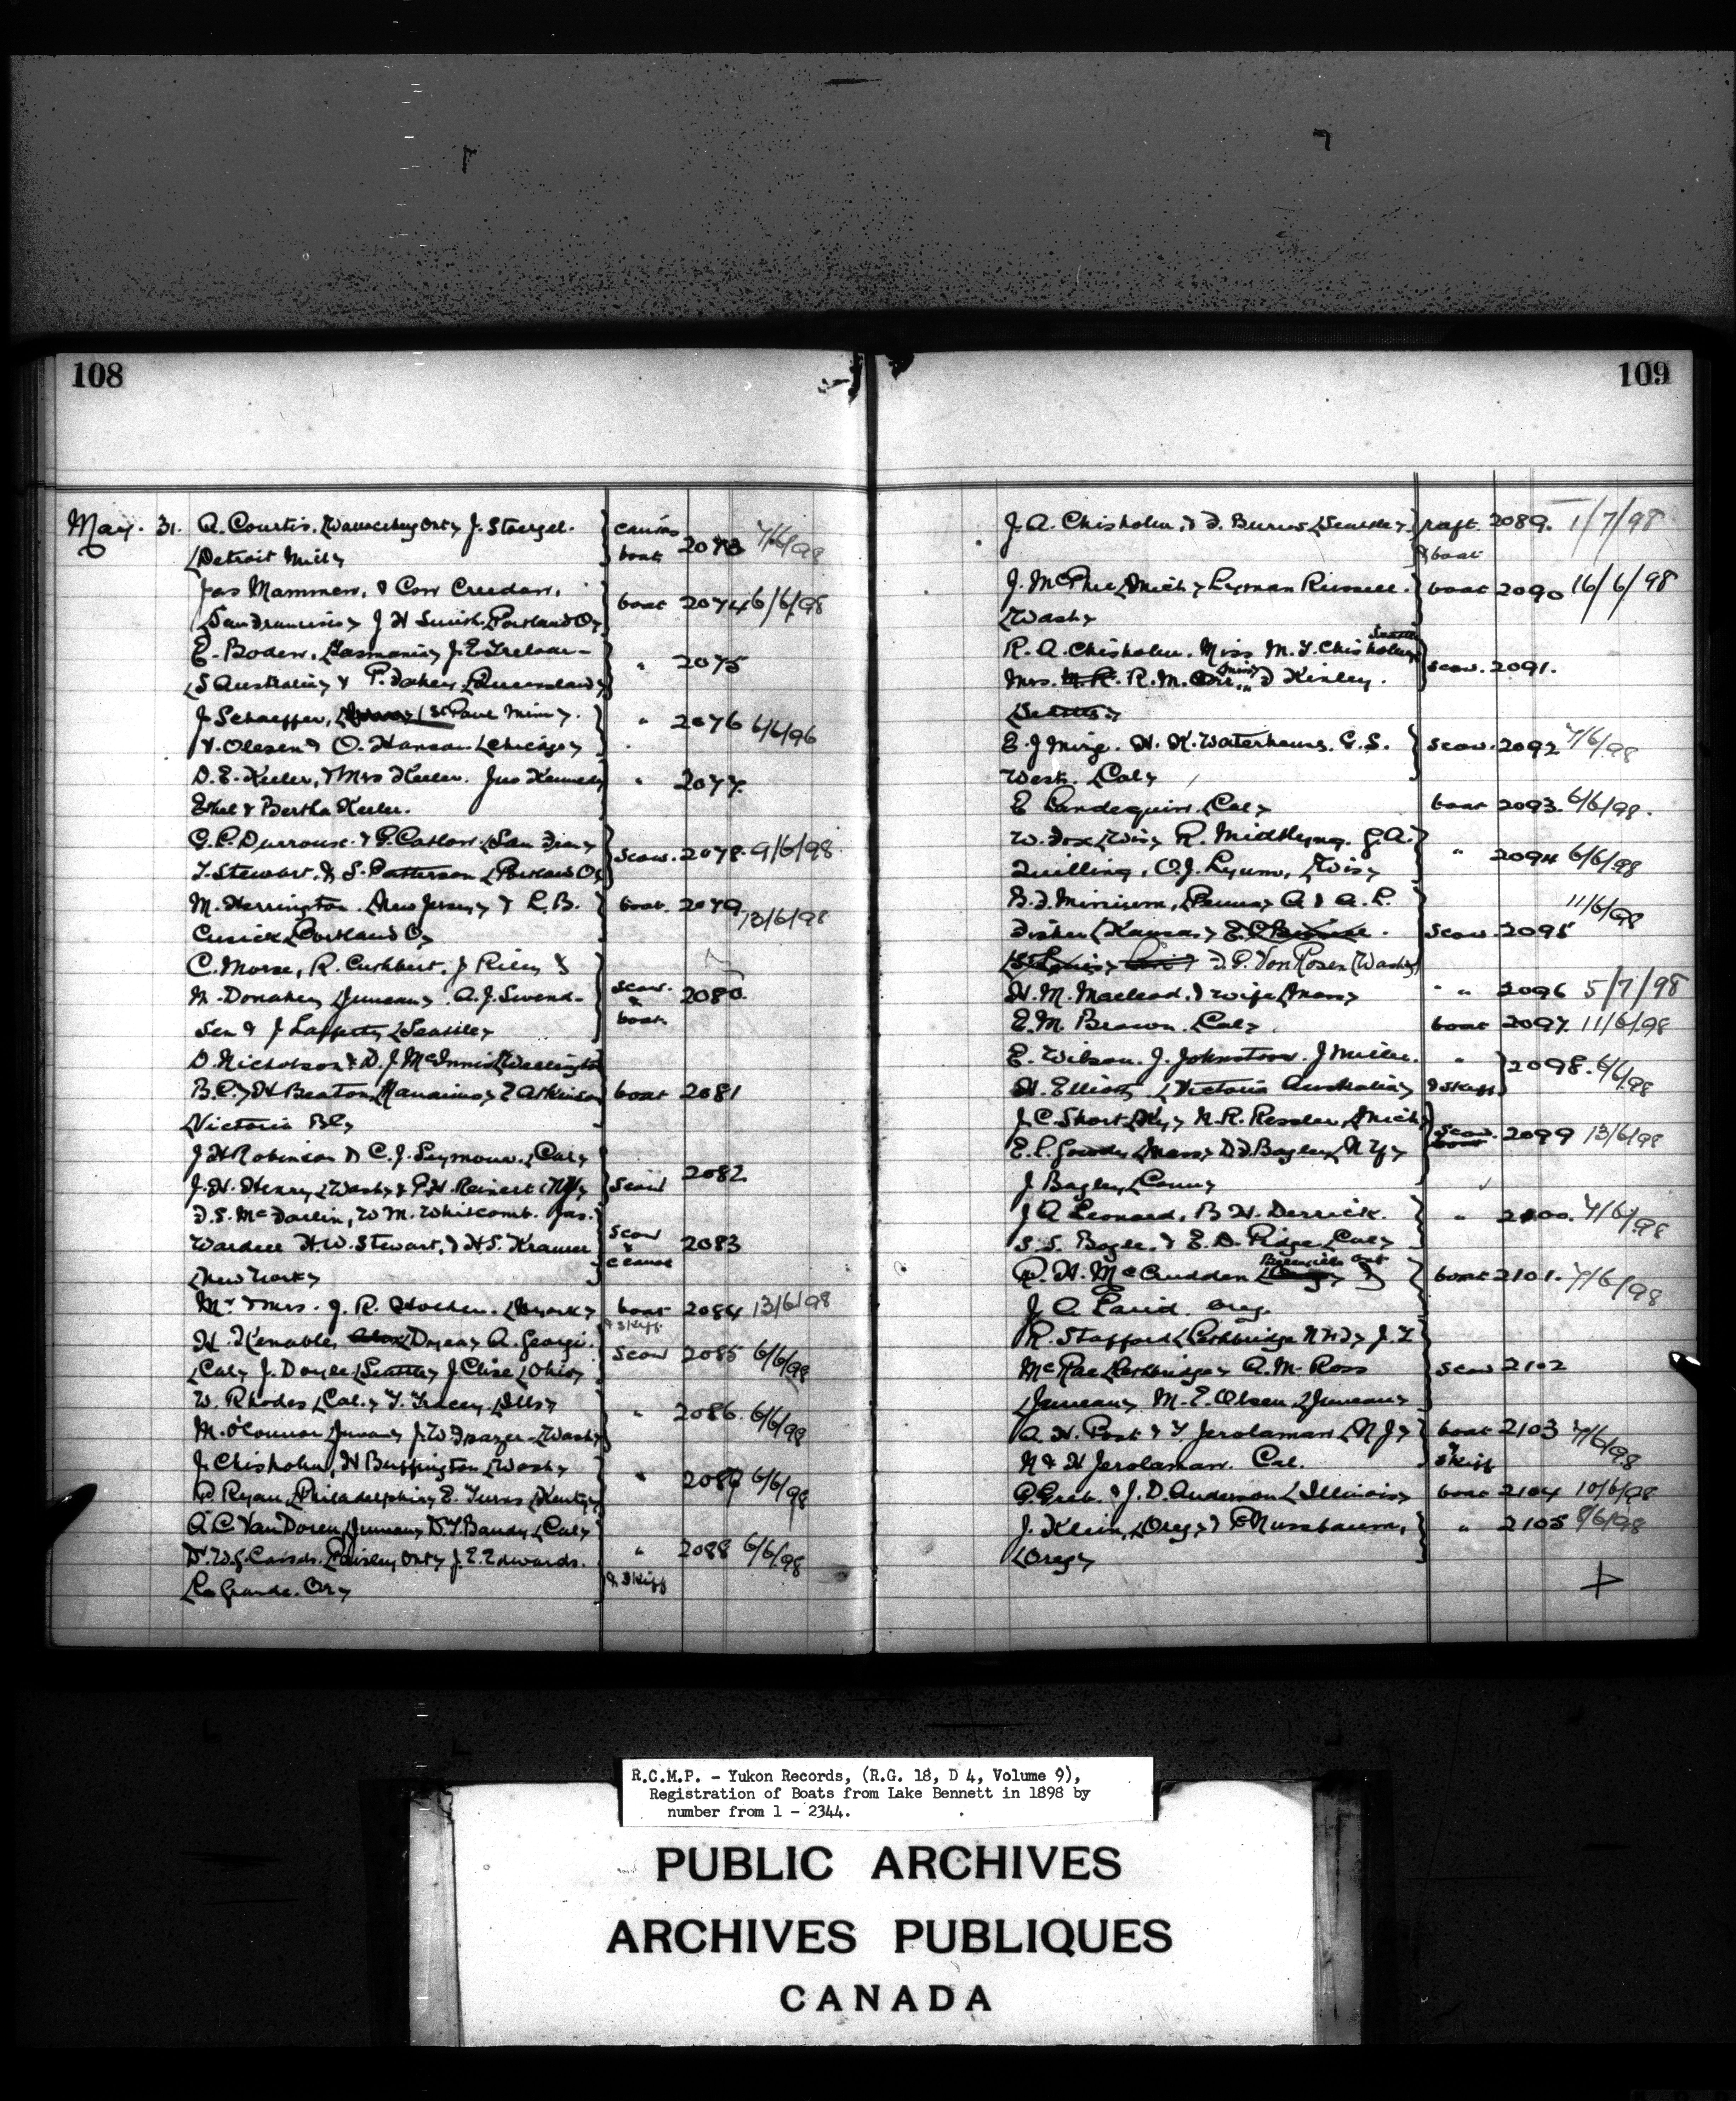 108
May. 31. A. Courtis. (Wallaceburg Ont) J. Stoergel. canvas
(Detroit Mich) boat 2073 7/6/98
Jas Mammen, & Con Creedan,
(San Francisco) J H Smith (Portland O) boat 2074 6/6/98
E. Boden, (Tasmania) J. E. Treloar-
(S Australia) & P. Fahey (Queensland) " 2075
J. Schaeffer, (St Paul Minn).
" 2076 6/6/96
. Olesen & O. Hanson (Chicago)
D. E. Keeler, & Mrs Keeler. Jno Kennedy " 2077.
Ethel & Bertha Keeler.
G. P. Durrouse. & G. Catlow. (San Fran)
scow. 2078. 9/6/98
T. Stewart. & S. Patterson (Portland O)
M. Herrington. (New Jersey) & L. B. boat. 2079
13/6/98
Cusick (Portland O)
C. Morse, R. Cuthbert, J Riley &
M. Donahey (Juneau). A. J. Swend- scow. & 2080.
sen & J Lafferty (Seattle) boat.
D. Nicholson & D. J. McInnis (Wellington
B.C.) H Beaton (Nanaimo) E Atkinson boat 2081
(Victoria BC)
J H Robinson & C. J. Seymour. (Cal)
J. H. Henry (Wash) & P. H. Reinert (NY) Scow 2082
D. S. McFarlin, W M. Whitcomb. Jas.
Wardell H. W. Stewart, & H. S. Kramer scow & canoe 2083
(New York)
Mr & Mrs. J. R. Holden. boat 2084 13/6/98
& skiff
H. Kenable, (Dyea) A. Georgi.
(Cal) J. Doyle (Seattle) J. Clise (Ohio) scow 2085 6/6/98
W. Rhodes (Cal.) T. Tracey. (Ills)
" 2086. 6/6/98
M. O'Connor (Juneau) J. W. Frazer. (Wash)
J. Chisholm, H Buffington (Wash)
" 2087 6/6/98
P Ryan, (Philadelphia) E. Turns (Kenty)
A. C. Van Doren (Juneau) D. T. Bandy (Cal)
Dr. W. G. Cassels. (Paisley Ont) J. E. Edwards. " 2088 6/6/98
(La Grande. Or) & skiff
109
J. A. Chisholm, & F. Burns (Seattle) raft 2089. 1/7/98
& boat
J. McPhee (Mich) Lyman Russell. boat 2090 16/6/98
(Wash)
Seattle
R. A. Chisholm. Miss M. T. Chisholm
scow. 2091.
Mrs. R. M. Orr. Miss D Kinley.
(Seattle)
E. J Ming. H. K. Waterhouse. G. S. scow. 2092 7/6/98
West. (Cal)
E Landequin. (Cal) boat 2093. 6/6/98.
W. Fox (Wis) R. Midthyng. G. A.
" 2094 6/6/98
Quilling, O. J. Lyum, (Wis)
B. F. Minium, (Penna) A & A. L. 11/6/98
Fisher (Kansas) . scow. 2095
(St Louis) F. P. Von Rosen (Wash)
H. M. Macleod. & wife (Mass) " 2096 5/7/98
E. M. Brown. (Cal) boat 2097. 11/6/98
E. Wilson. J. Johnston. J Miller. "
2098. 6/6/98
H. Elliott (Victoria Australia) & skiff
J. C. Short (Ky) N. R. Ressler, (Mich)
scow. 2099 13/6/98
E. L. Goudy (Mass) D. F. Bagley (N Y)
J. Bagley (Conn)
J A Leonard, B H. Derrick. " 2100. 7/6/98
S. S. Bogle. & E. D. Ridge (Cal)
Ont
P. H. McCrudden boat 2101. 7/6/98
J. A. Laird. Oreg.
R. Stafford (Lethbridge NWT) J. T.
McRae (Lethbridge) A. M. Ross scow 2102
(Juneau) M. E. Olsen (Juneau)
A. H. Post & T. Jerolaman (N J) boat 2103 7/6/98
N & H Jerolaman. Cal. & skiff
P. Greb. & J. D. Anderson (Illinois) boat 2104 10/6/98
J. Klein, (Oreg) P Nussbaum, " 2105 8/6/98
(Oreg)
R.C.M.P. - Yukon Records, (R.G. 18, D 4, Volume 9),
Registration of Boats from Lake Bennett in 1898 by
number from 1 - 2344.
PUBLIC ARCHIVES
ARCHIVES PUBLIQUES
CANADA